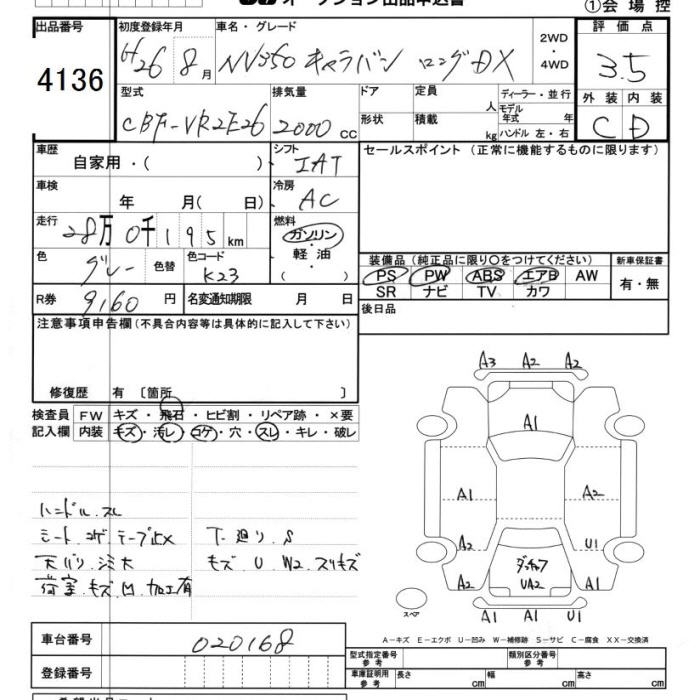 オークション出品申込書
①会場控
出品番号
4136
初度登録年月
H26 8月
車名・グレード
NV350 キャラバン ロングDX
2WD
・
4WD
評価点
3.5
型式
CBF-VR2E26
排気量
2000 CC
ドア
形状
定員
人
積載
kg
ディーラー・並行
モデル
年式 年
ハンドル 左・右
外装 内装
C D
車歴
自家用・( )
シフト
IAT
セールスポイント (正常に機能するものに限ります)
車検
年 月( 日)
冷房
AC
走行
28万0千195km
燃料
ガソリン
・
軽油
・
( )
色
グレー
色替
色コード
K23
装備品 (純正品に限り○をつけてください)
PS PW ABS エアB AW
SR ナビ TV カワ
新車保証書
有・無
R券
9160 円
名変通知期限 月 日
後日品
注意事項申告欄 (不具合内容等は具体的に記入して下さい)
修復歴 有 〔箇所 〕
検査員
記入欄
FW キズ・飛石・ヒビ割・リペア跡・×要
内装 キズ・汚レ・コゲ・穴・スレ・キレ・破レ
ハンドル.スレ
シート.コゲ テープ止メ
天バリ.シミ大
荷室.キズ.凹.加工有
下廻り.S
キズ.U.W2.スリキズ
A3 A2 A2
A1
A1
A1
A2
A2
U1
A2
ダッチャク
UA2
A1
A1 A1 U1
スペア
A-キズ E-エクボ U-凹み W-補修跡 S-サビ C-腐食 XX-交換済
車台番号
020168
登録番号
型式指定番号
参考
類別区分番号
参考
車庫証明用
参考
長さ cm
幅 cm
高さ cm